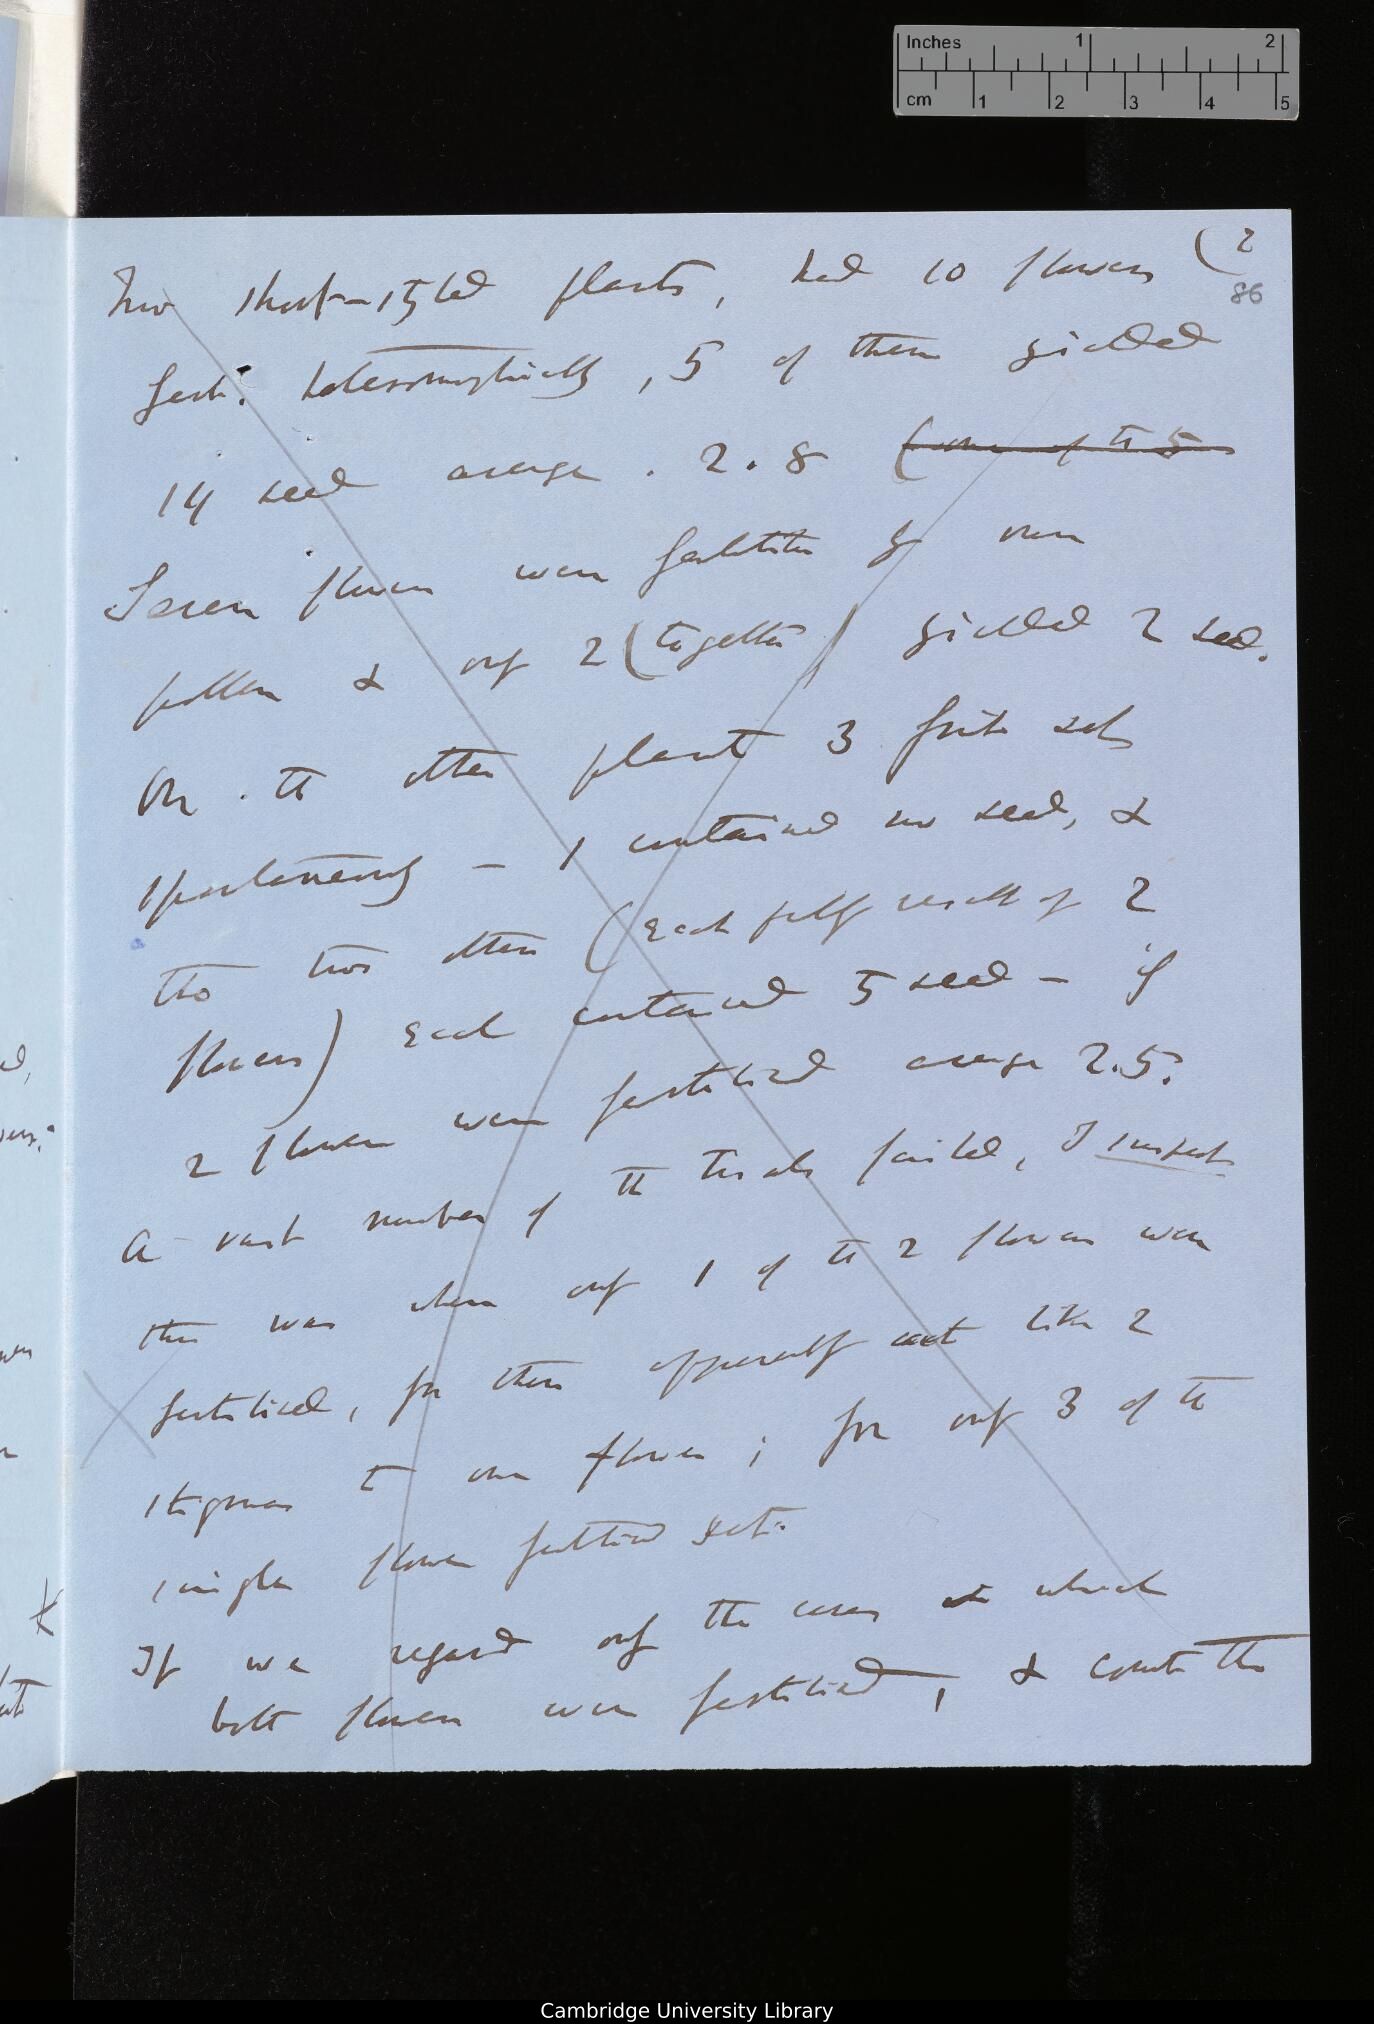 Inches 1 2
cm 1 2 3 4 5
(2
86
Two short-styled plants, had 10 flowers
fert. heteromorphically, 5 of them yielded
14 seed average . 2.8 (one of the 5
Seven flowers were fertilised by own
pollen & only 2 (together) yielded 2 seed.
On the other plant 3 fruits set
spontaneously — 1 contained no seed, & 
the two others (Each result of 2
flowers) Each contained 5 seed — if
2 flowers were fertilised average 2.5.
A vast number of the trials failed, I suspect
this was when only 1 of the 2 flowers were
fertilised, for there apparently act like 2
stigmas to one flower; for only 3 of the
single flowers fertilised set.
If we regard only the cases in which
both flowers were fertilised, & count the
Cambridge University Library